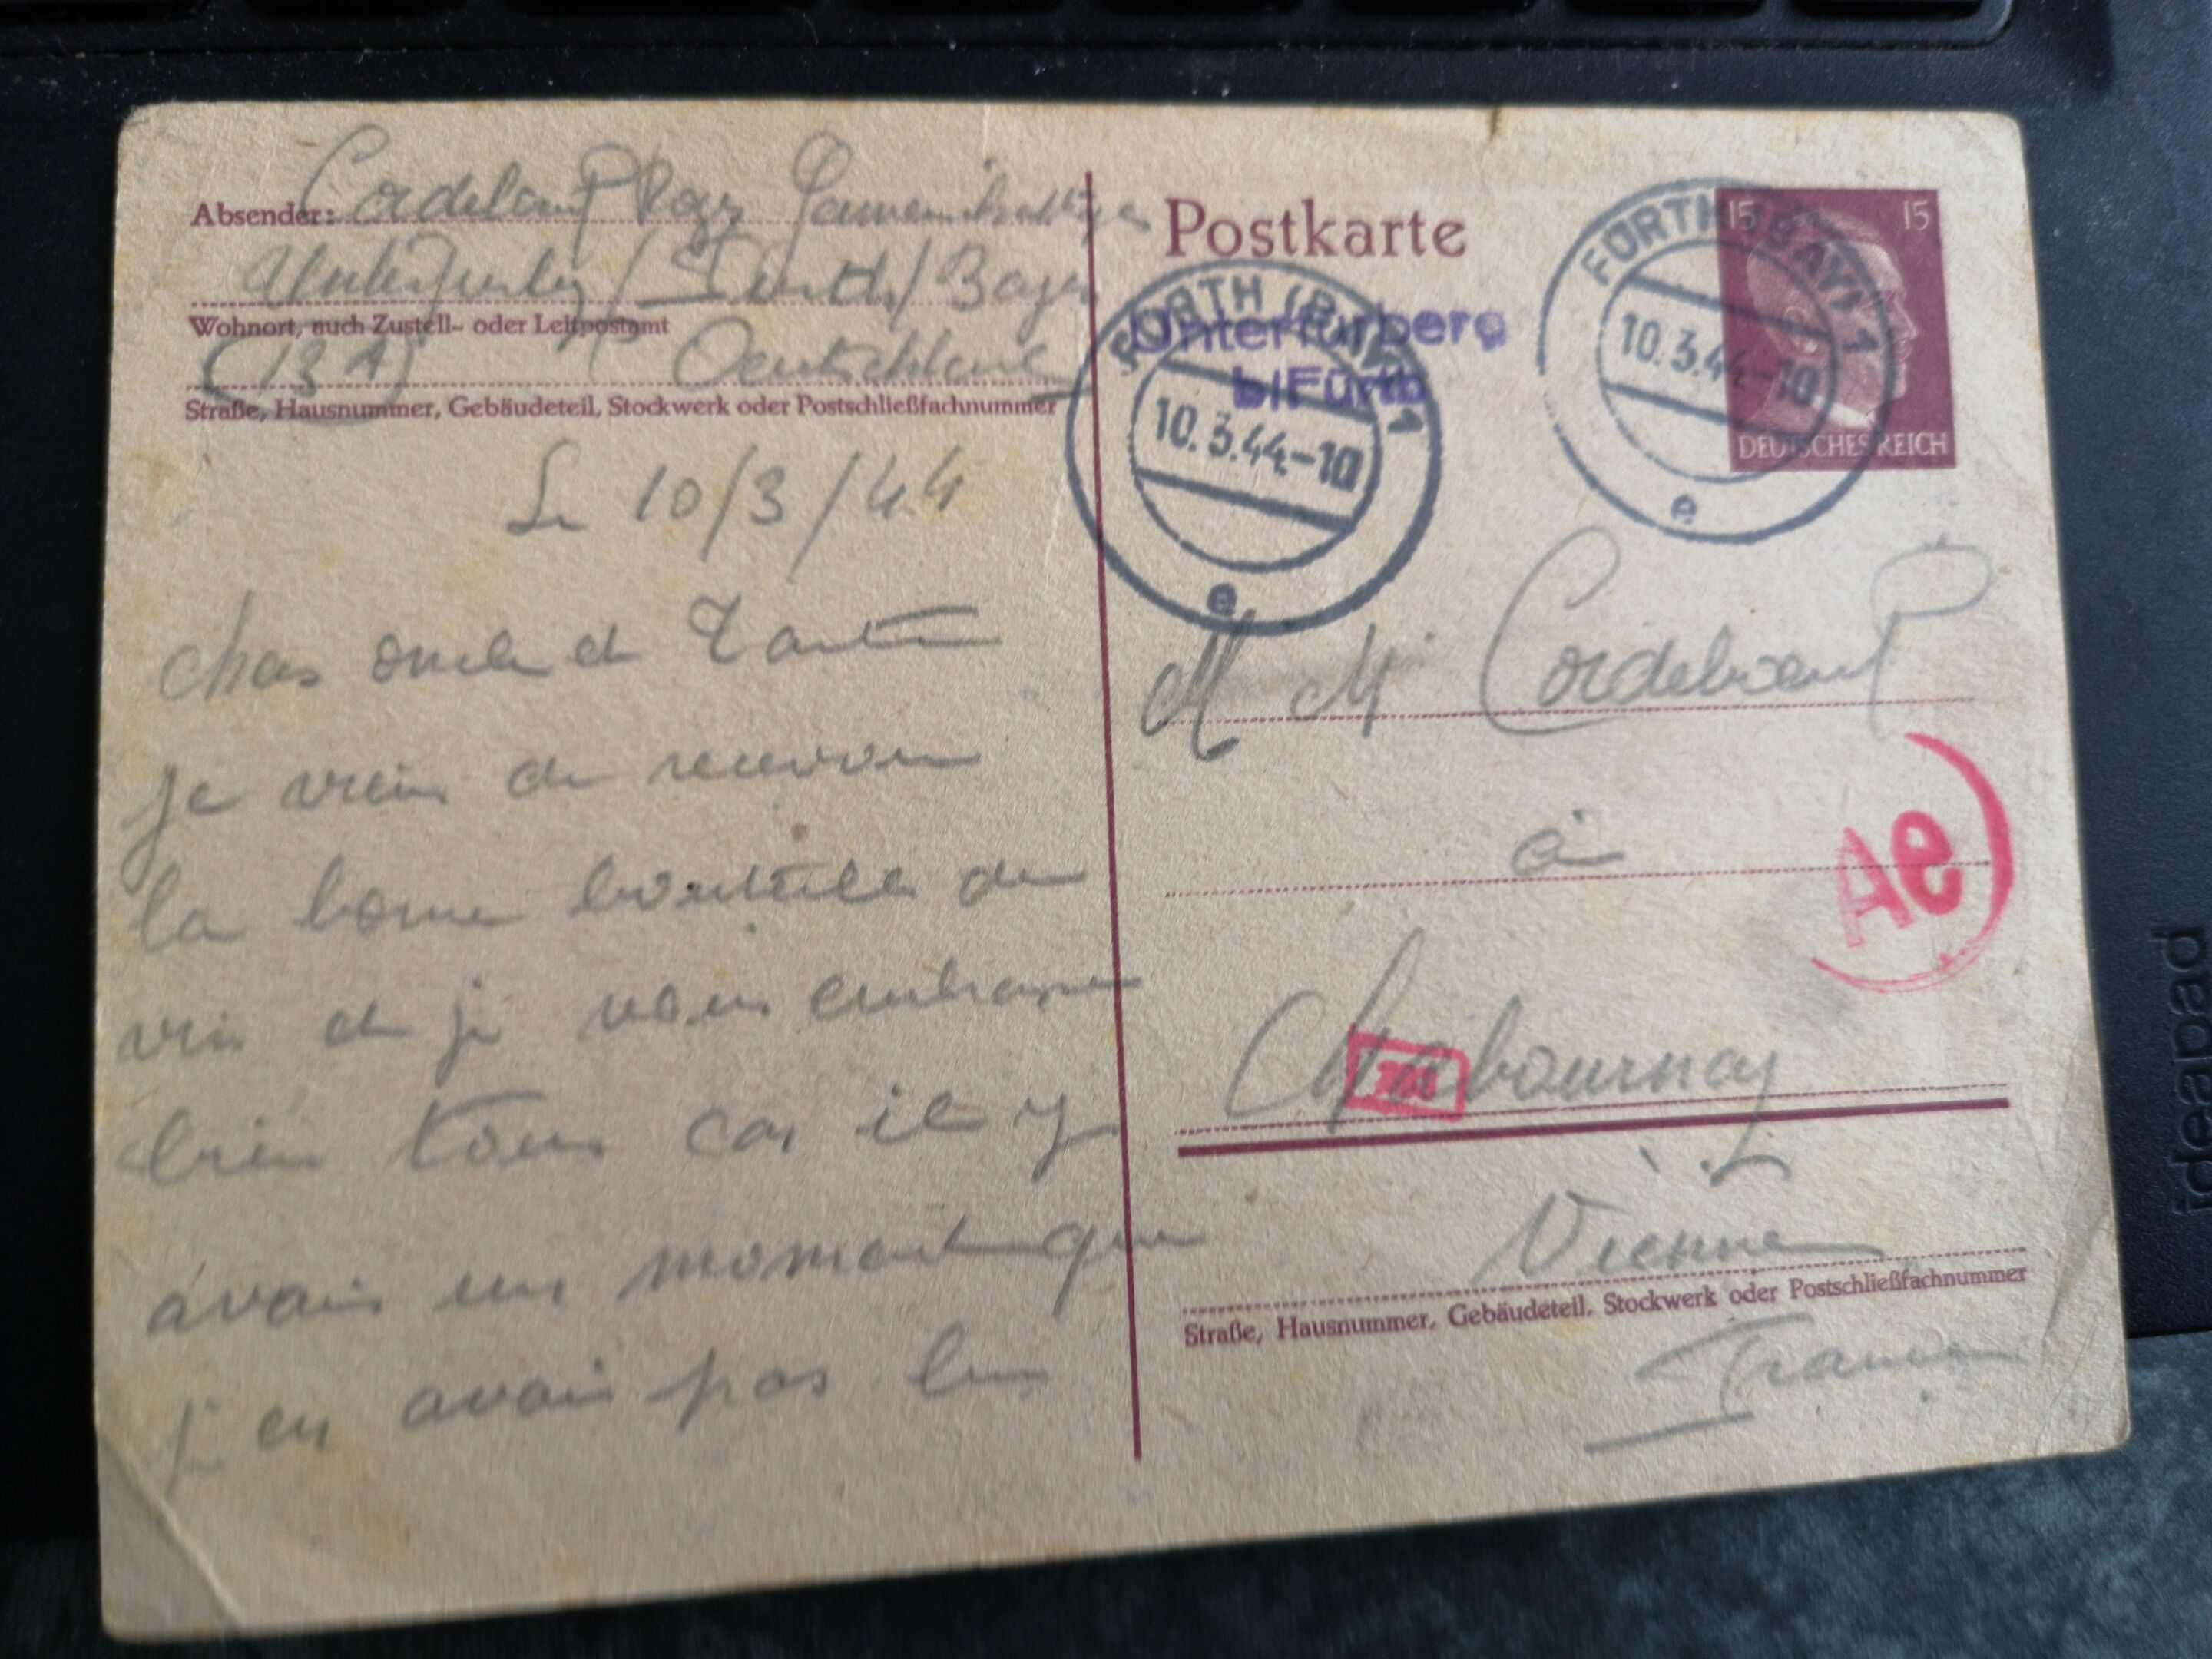 Absender: Cordeboeuf Roger
Unterfurberg / Furth / Bayer
Wohnort, auch Zustell- oder Leitpostamt
(13 A) Deutschland
Straße, Hausnummer, Gebäudeteil, Stockwerk oder Postschließfachnummer
Le 10/3/44
chers oncle et Tante
je viens de recevoir
la bonne bouteille de
vin et je vous embrasse
bien tous car il y
avais un moment que
j en avais pas bu
Postkarte
15 15
DEUTSCHES REICH
FÜRTH (BAY) 1
10.3.44-10
e
FÜRTH (BAY) 1
10.3.44-10
e
Unterfürberg
b/Fürth
M M Cordeboeuf
à
Ae
Chabournay
Vienne
Straße, Hausnummer, Gebäudeteil, Stockwerk oder Postschließfachnummer
France
ideapad